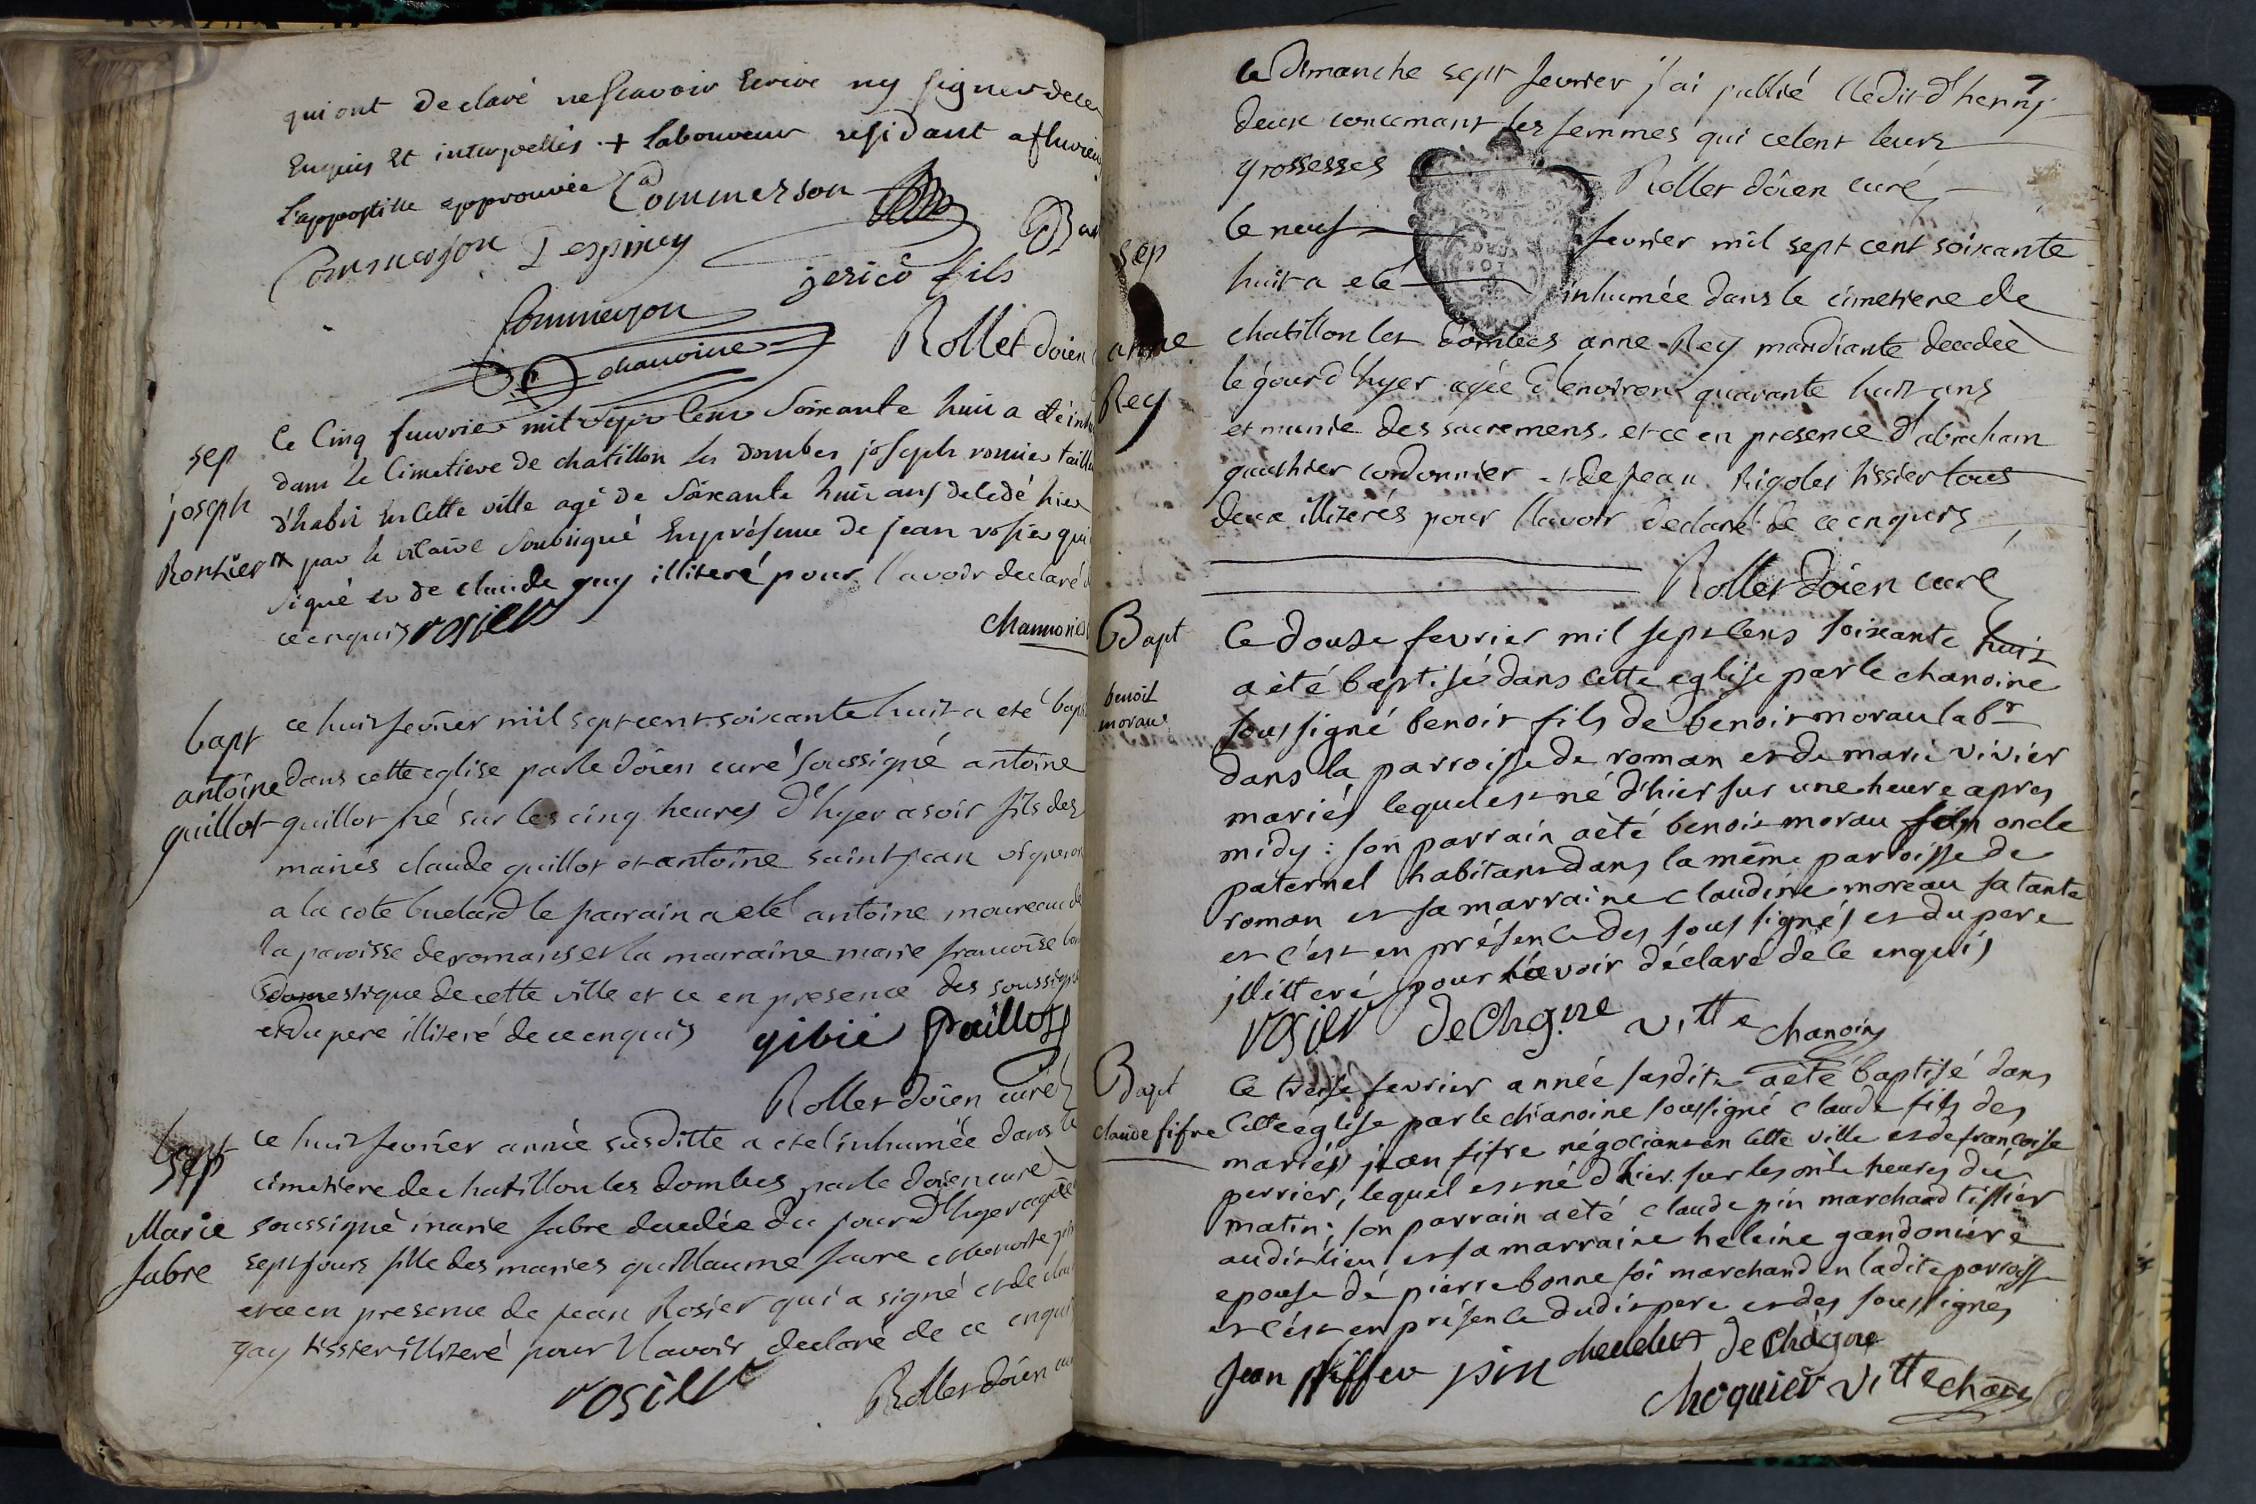 qui ont declaré ne scavoir Ecrire ny signer de ce
Enquis Et interpellés + Laboureur residant a flurieu
L'appostille approuvée Commerson
Commerson Despiney
jerico fils
Commerson
chanoine
Rollet doien
sep
joseph
Ronzier
Ce Cinq fuvrier mil sept Cens Soixante huit a été inhu
dans le Cimetiere de chatillon les dombes joseph ronzier taill
d'habit En Cette ville agé de Soixante huit ans deledé hier
par le vicaire Soubsigné En présence de jean rosier qui
signé et de claude guy illiteré pour l'avoir declaré d
ce enquis rosier
bapt
antoine
guillot
ce huit fevrier mil sept cent soixante huit a eté bapt
dans cette eglise par le doien curé soussigné antoine
guillot né sur les cinq heures d'hyer a soir fils des
mariés claude guillot et antoine saint jean vigneron
a la cote buclard le parain a eté antoine moureau de
la paroisse de romans et la maraine marie francoise
domestique de cette ville et ce en presence des soussignés
et du pere illiteré de ce enquis gibié Paillot
Rollet doien curé
sep
Marie
fabre
ce huit fevrier année susditte a eté inhumée dans le
cimetiere de chatillon les dombes par le doien curé
soussigné marie fabre decedée du jour d'hyer agée de
sept jours fille des mariés guillaume favre et benoite
et ce en presence de jean Rosier qui a signé et de clau
gay tissier illiteré pour l'avoir declaré de ce enqui
rosier Rollet doien cu
7
le dimanche sept fevrier j'ai publié l'edit d'henry
deux concernant les femmes qui celent leurs
grossesses Rollet doien curé
sep
anne
Rey
le neuf fevrier mil sept cent soixante
huit a eté inhumée dans le cimetiere de
chatillon les dombes anne Rey mandiante decedée
le jour d'hyer agée d'environ quarante huit ans
et munie des sacremens, et ce en presence d'abraham
gauthier cordonnier et de jean Rigolet tissier tous
deux illiterés pour l'avoir declaré de ce enquis
Rollet doien curé
Bapt
benoit
morau
Ce douze fevrier mil sept cens soixante huit
a été baptisé dans cette eglise par le chanoine
soussigné benoit fils de benoit morau labr
dans la parroisse de roman et de marie vivier
mariés lequel est né d'hier sur une heure apres
midy : son parrain a été benoit morau son oncle
paternel habitant dans la même parroisse de
roman et sa marraine claudine moreau sa tante
et c'est en présence des soussignés et du pere
illitteré pour l'avoir déclaré de ce enquis
rosier deChagne vitte chanoine
Bapt
claude fifre
Ce treize fevrier année susdite a été baptisé dans
cette église par le chanoine soussigné claude fils des
mariés jean fifre négociant en cette ville et de francoise
perrier, lequel est né d'hier sur les onze heures du
matin; son parrain a été claude pin marchand tissier
audit lieu et sa marraine heleine gandoniere
epouse de pierre bonnefoi marchand en ladite parroisse
et c'est en présence dudit pere et des soussignés
Jean pfiffer pin de Chagne
choquier vitte chane